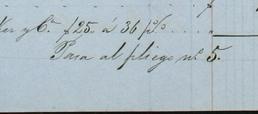 y Ca. £25. á 36 p%....
Pasa al pliego nº 5.